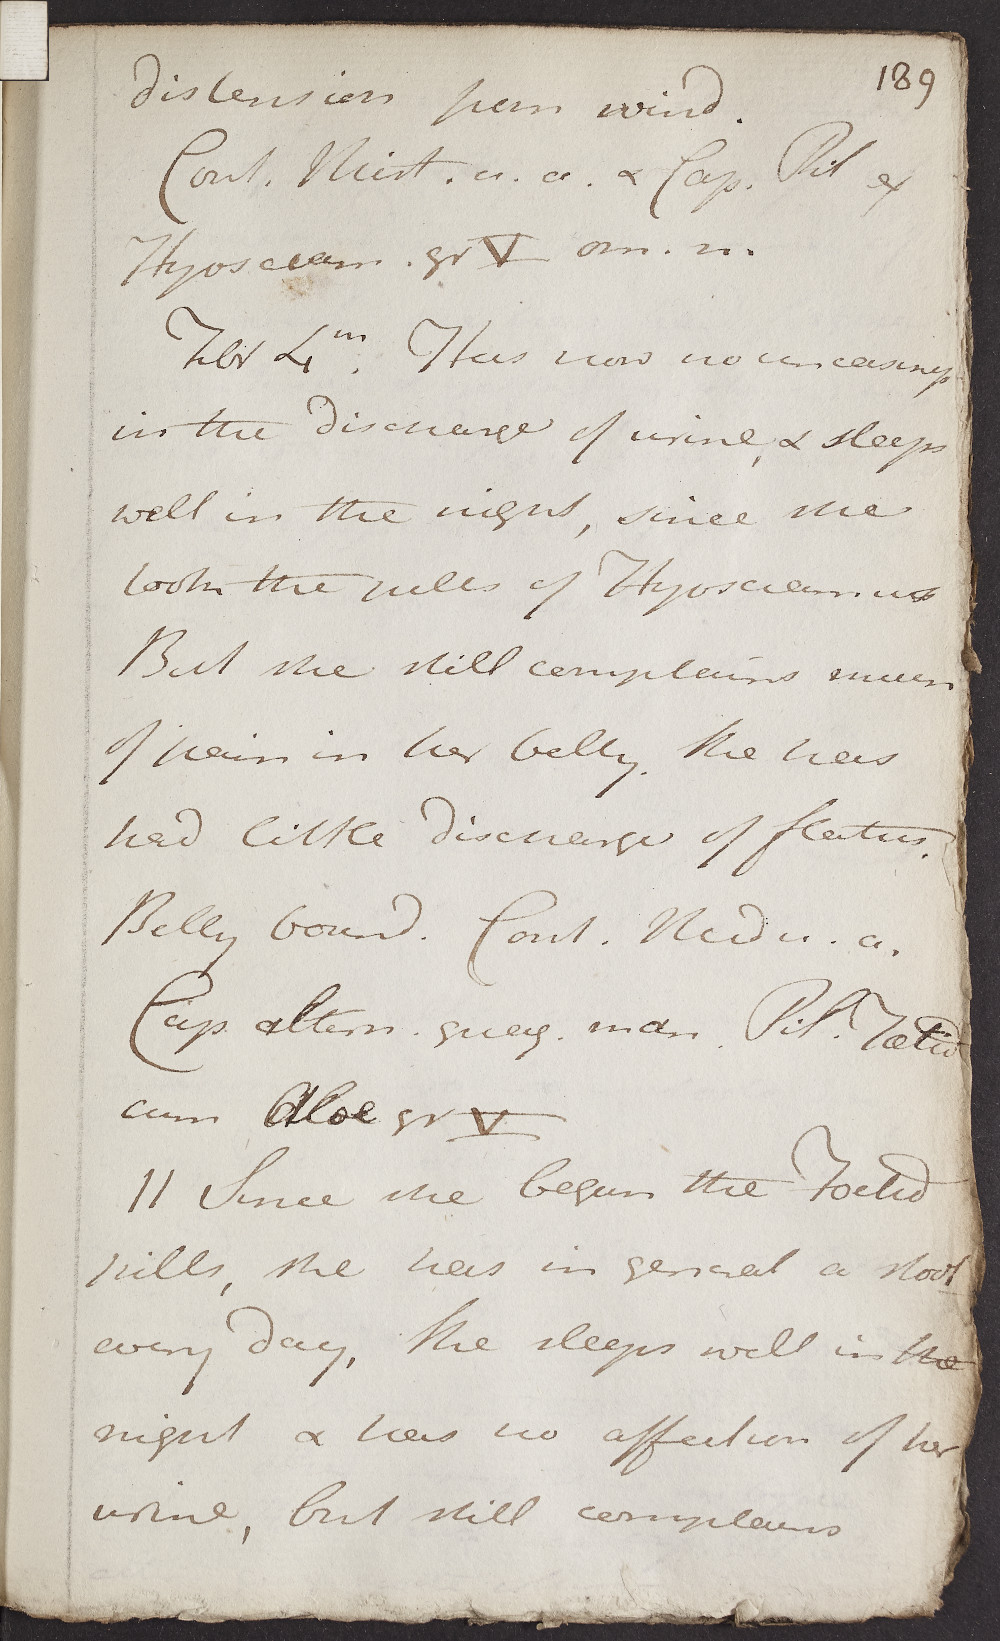 189
distension from wind.
Cont. Mist. u. a. & Cap. Pil ex
Hyosciam. gr V om. n.
Febr 4th. Has now no uneasiness
in the discharge of urine, & sleeps
well in the night, since she
took the pills of Hyosciamus
But she still complains much
of pain in her belly. She has
had little discharge of flatus.
Belly bound. Cont. Med u. a.
Cap. altern. quaq. man. Pil. Foetid
cum Aloe gr V
11 Since she begun the Foetid
pills, she has in general a stool
every day, She sleeps well in the
night & has no affection of her
urine, but still complains